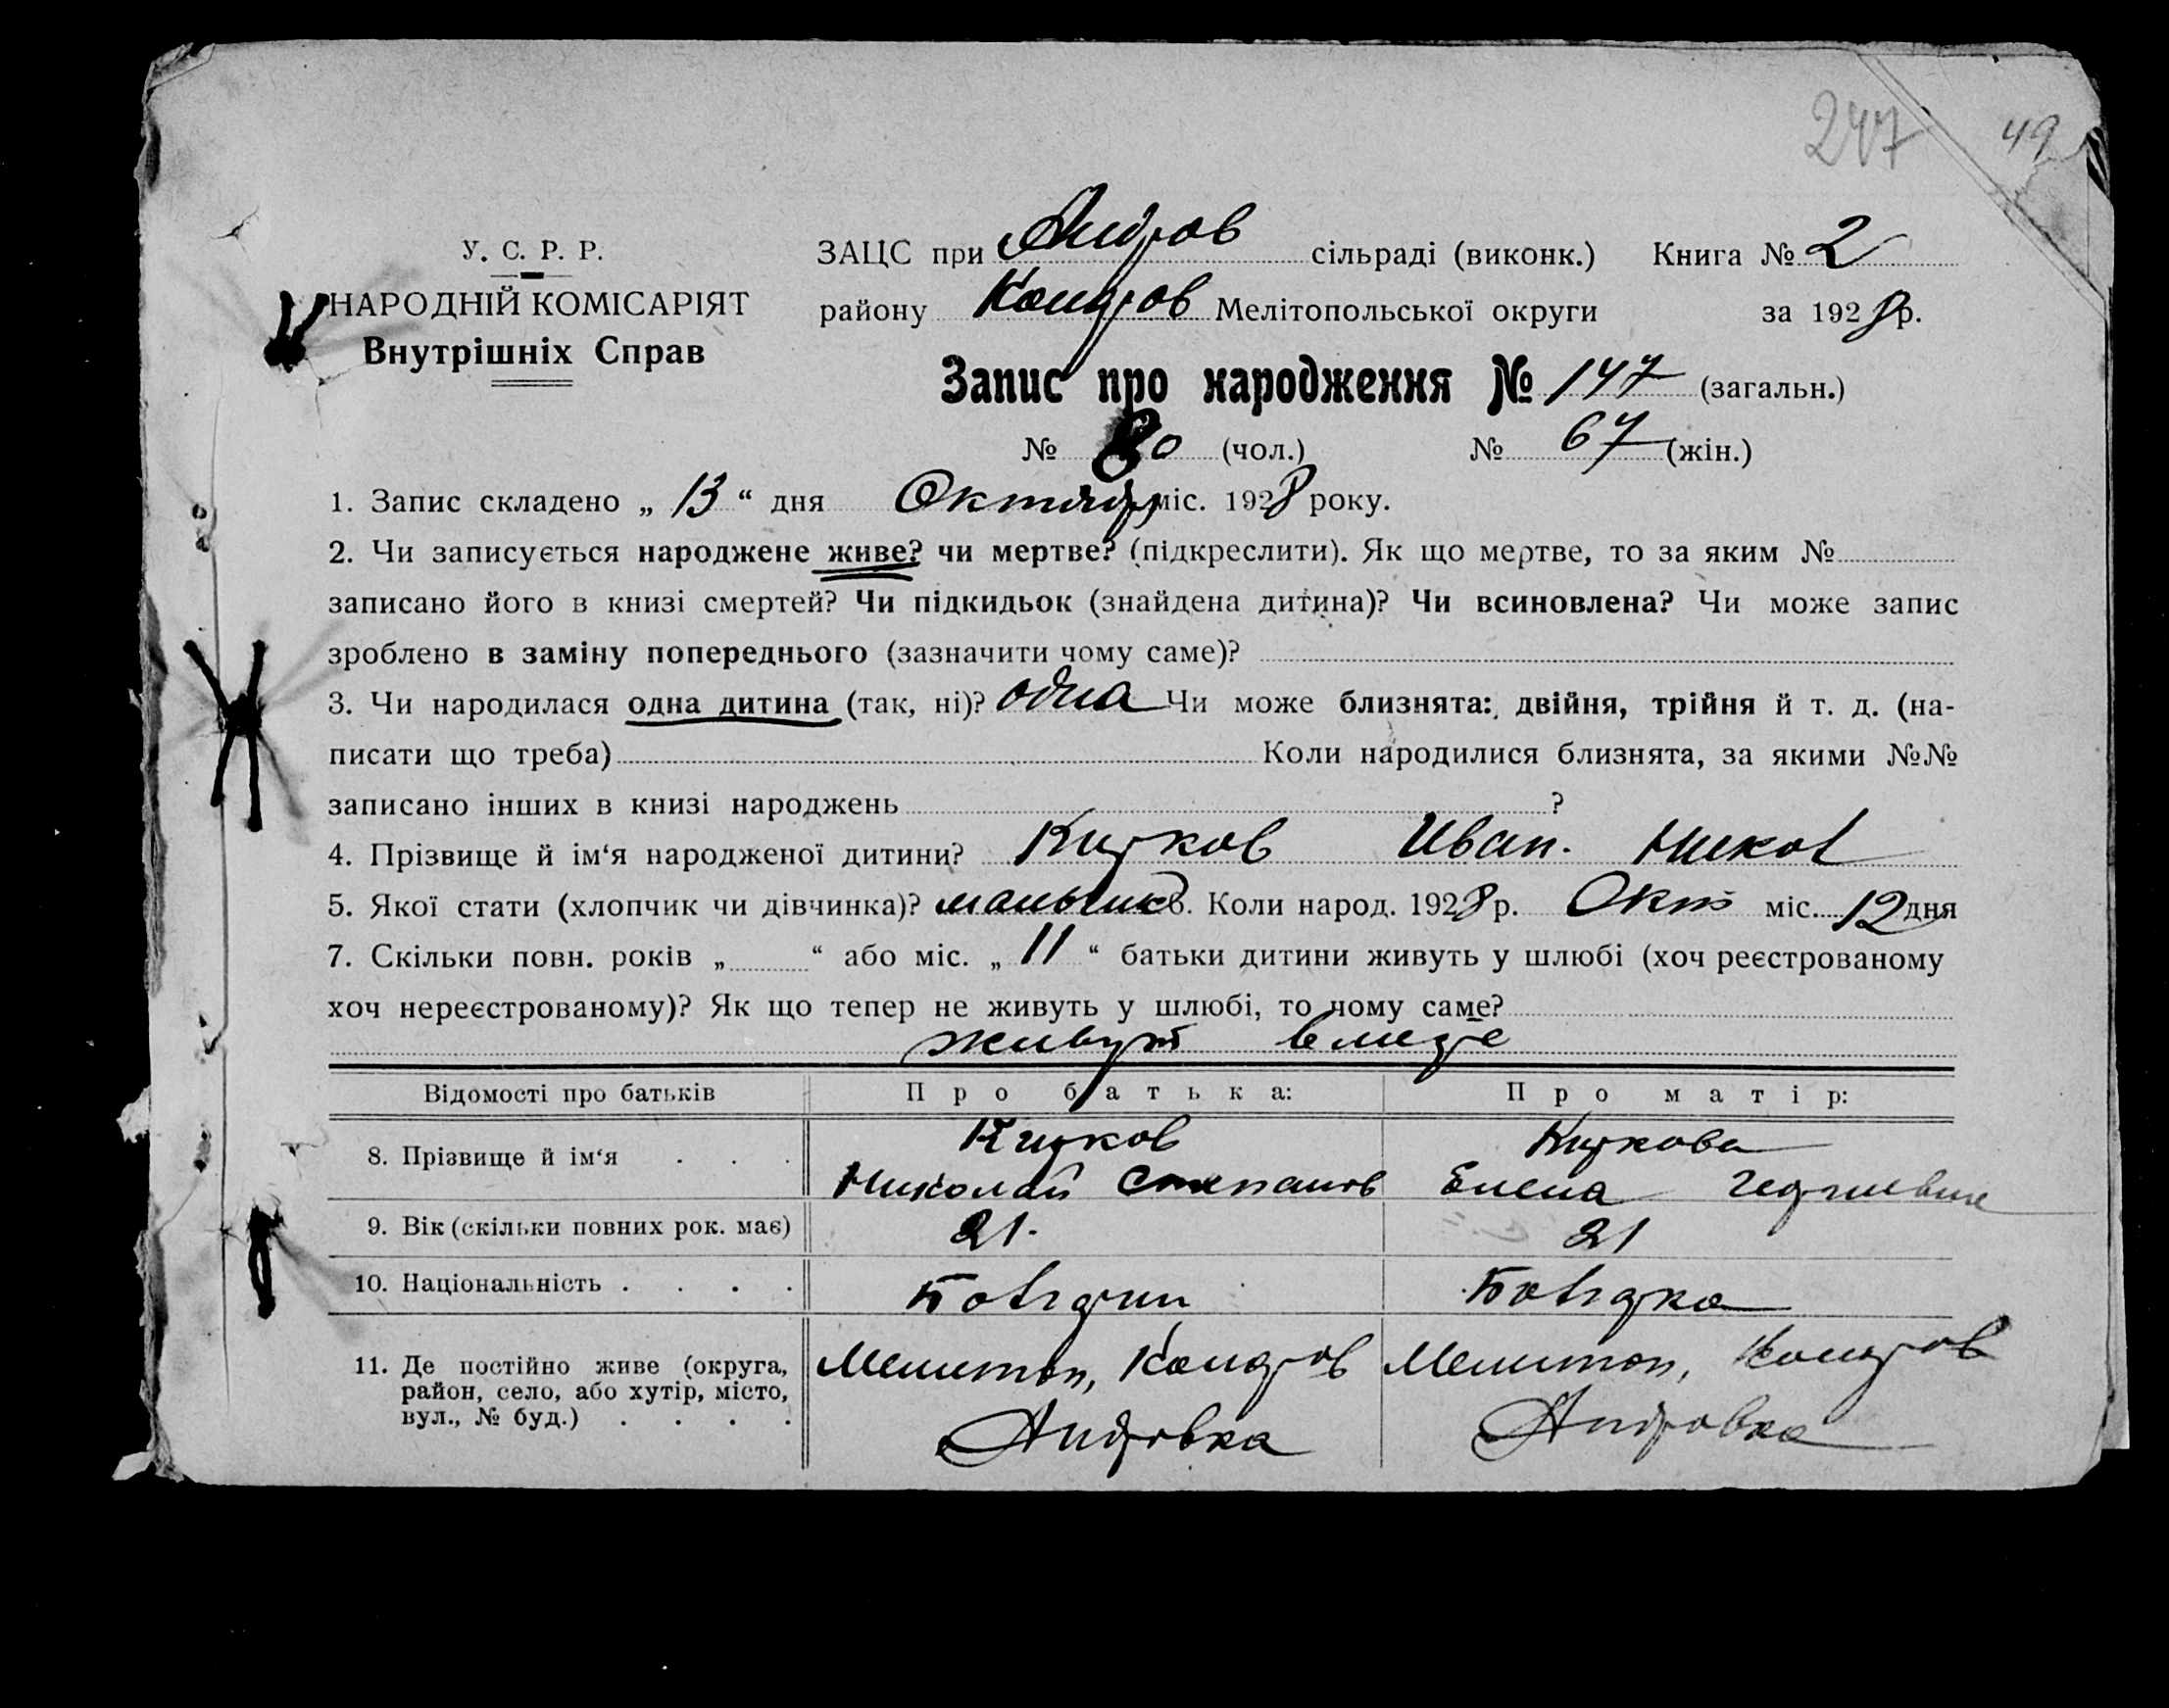 247 49
У. С. Р. Р. ЗАЦС при Андров сільраді (виконк.) Книга № 2
НАРОДНІЙ КОМІСАРІЯТ району Мелітопольської округи за 1928 р.
Внутрішніх Справ
Запис про народження № 147 (загальн.)
№ 80 (чол.) № 67 (жін.)
1. Запис складено „ 13 “ дня Октября міс. 1928 року.
2. Чи записується народжене живе? чи мертве? (підкреслити). Як що мертве, то за яким №
записано його в книзі смертей? Чи підкидьок (знайдена дитина)? Чи всиновлена? Чи може запис
зроблено в заміну попереднього (зазначити чому саме)?
3. Чи народилася одна дитина (так, ні)? одна Чи може близнята: двійня, трійня й т. д. (на-
писати що треба) Коли народилися близнята, за якими №№
записано інших в книзі народжень ?
4. Прізвище й ім‘я народженої дитини? Иван. Никол
5. Якої стати (хлопчик чи дівчинка)? мальчик 6. Коли народ. 1928 р. Окт міс. 12 дня
7. Скільки повн. років „ “ або міс. „ 11 “ батьки дитини живуть у шлюбі (хоч реєстрованому
хоч нереєстрованому)? Як що тепер не живуть у шлюбі, то чому саме?
живут вместе
Відомості про батьків Про батька: Про матір:
8. Прізвище й ім‘я . . .
Николай Степанов Елена
9. Вік (скільки повних рок. має) 21. 21
10. Національність . . . .
11. Де постійно живе (округа, Мелитоп, Мелитоп,
район, село, або хутір, місто,
вул., № буд.) . . . . Андровка Андровка